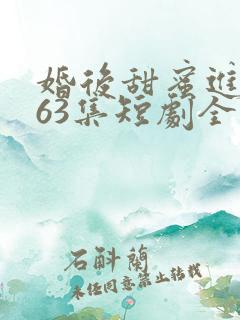 婚後甜蜜進
63集短劇全
石斛蘭
未任同意禁止转载